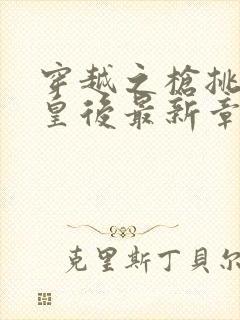 穿越之槍挑
皇後最新章
克里斯丁貝尔